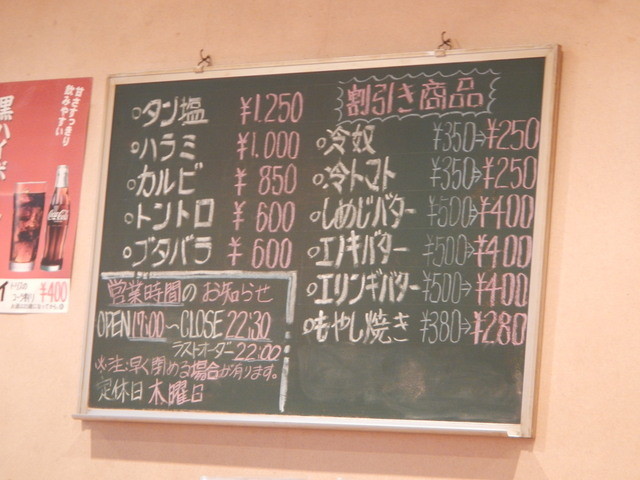 ○タン塩 ¥1,250
○ハラミ ¥1,000
○カルビ ¥850
○トントロ ¥600
○ブタバラ ¥600
営業時間のお知らせ
OPEN 17:00〜CLOSE 22:30
ラストオーダー 22:00
※注:早く閉める場合が有ります。
定休日 木曜日
割引き商品
○冷奴 ¥350→¥250
○冷トマト ¥350→¥250
○しめじバター ¥500→¥400
○エノキバター ¥500→¥400
○エリンギバター ¥500→¥400
○もやし焼き ¥380→¥280
甘さすっきり
飲みやすい
黒ハイボ
Coca-Cola
¥400